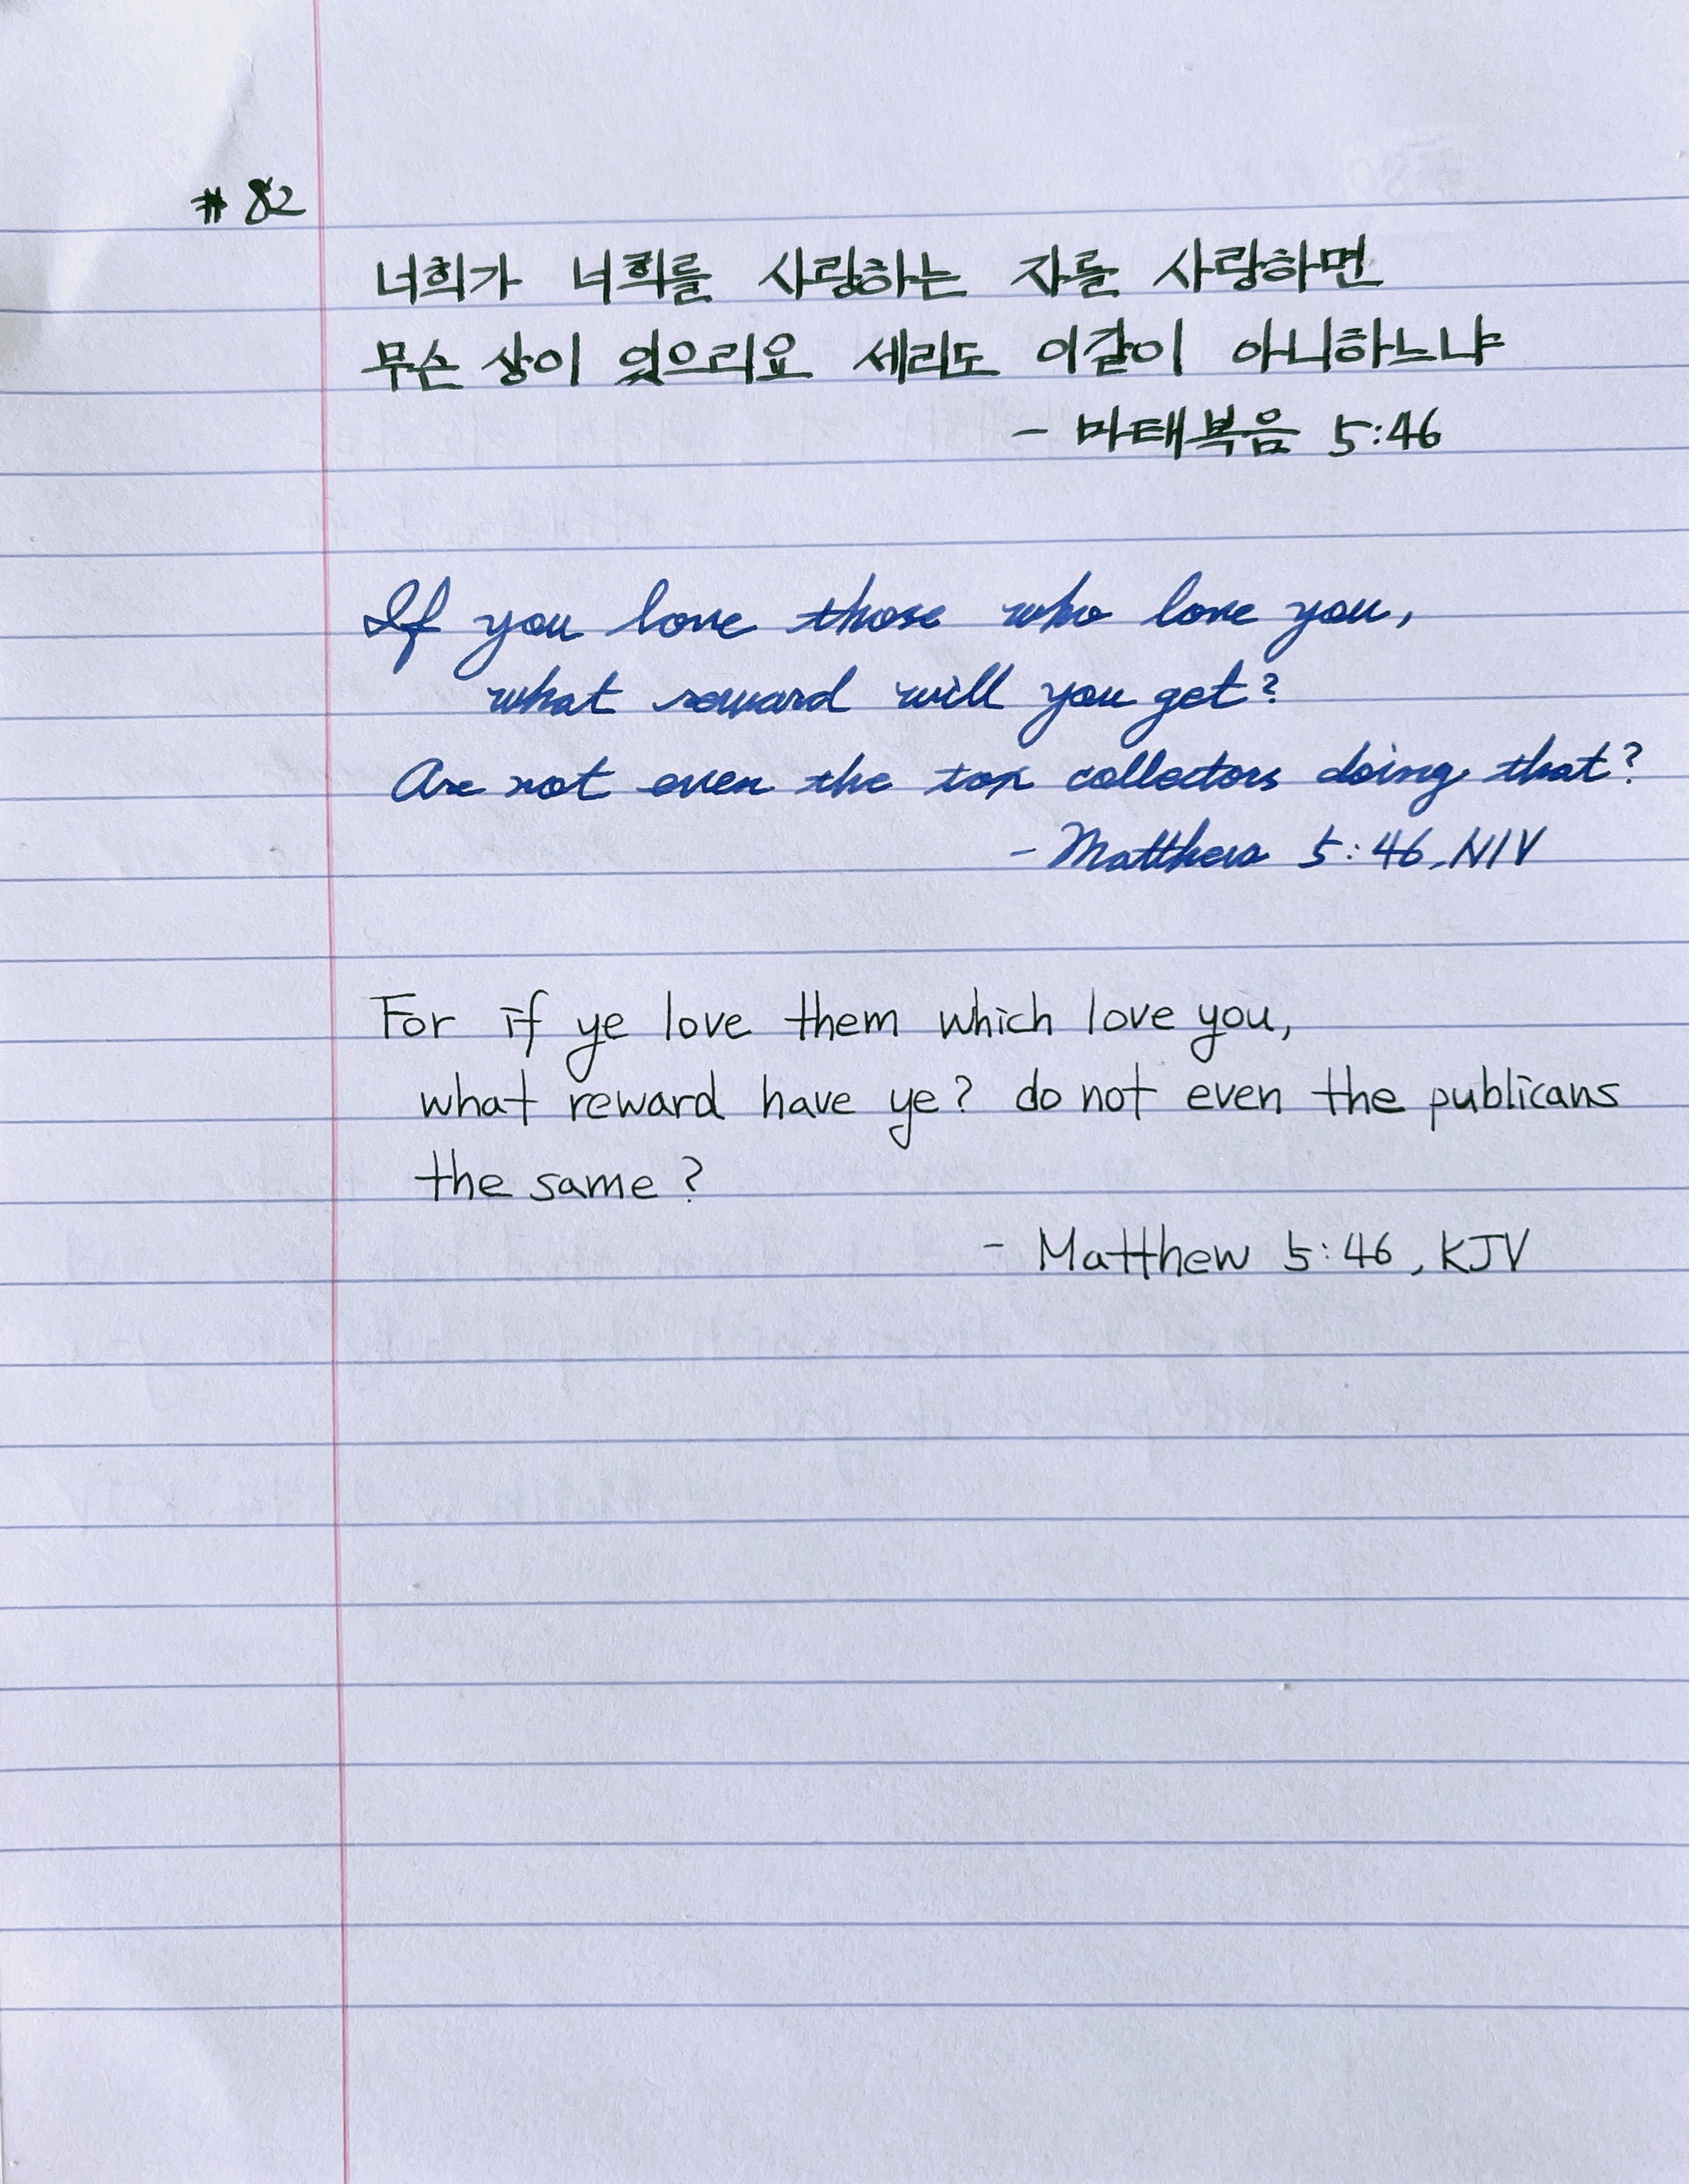 #82
너희가 너희를 사랑하는 자를 사랑하면
무슨 상이 있으리요 세리도 이같이 아니하느냐
- 마태복음 5:46
If you love those who love you,
what reward will you get?
Are not even the tax collectors doing that?
- Matthew 5:46, NIV
For if ye love them which love you,
what reward have ye? do not even the publicans
the same?
- Matthew 5:46, KJV